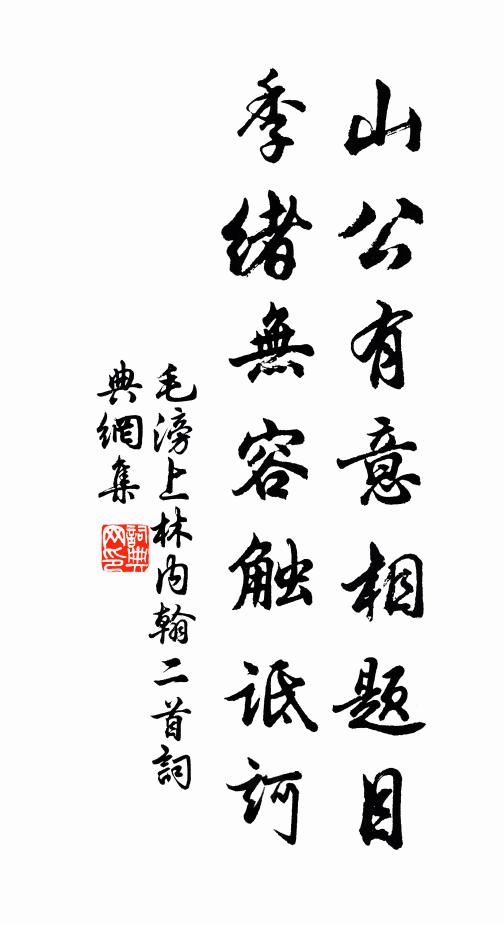 山公有意相题目
季绪無容触诋訶
毛滂上林内翰二首詞
典網集
詞典网印